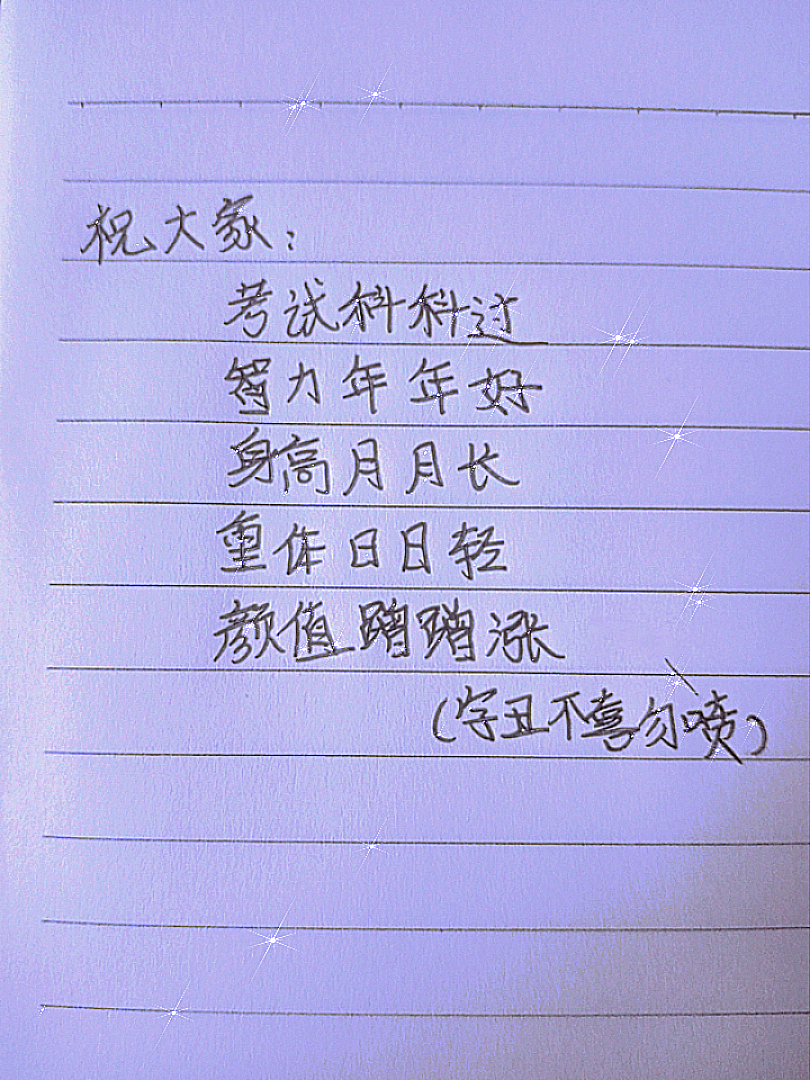 祝大家：
考试科科过
智力年年好
身高月月长
重体日日轻
颜值蹭蹭涨
（字丑不喜勿喷）